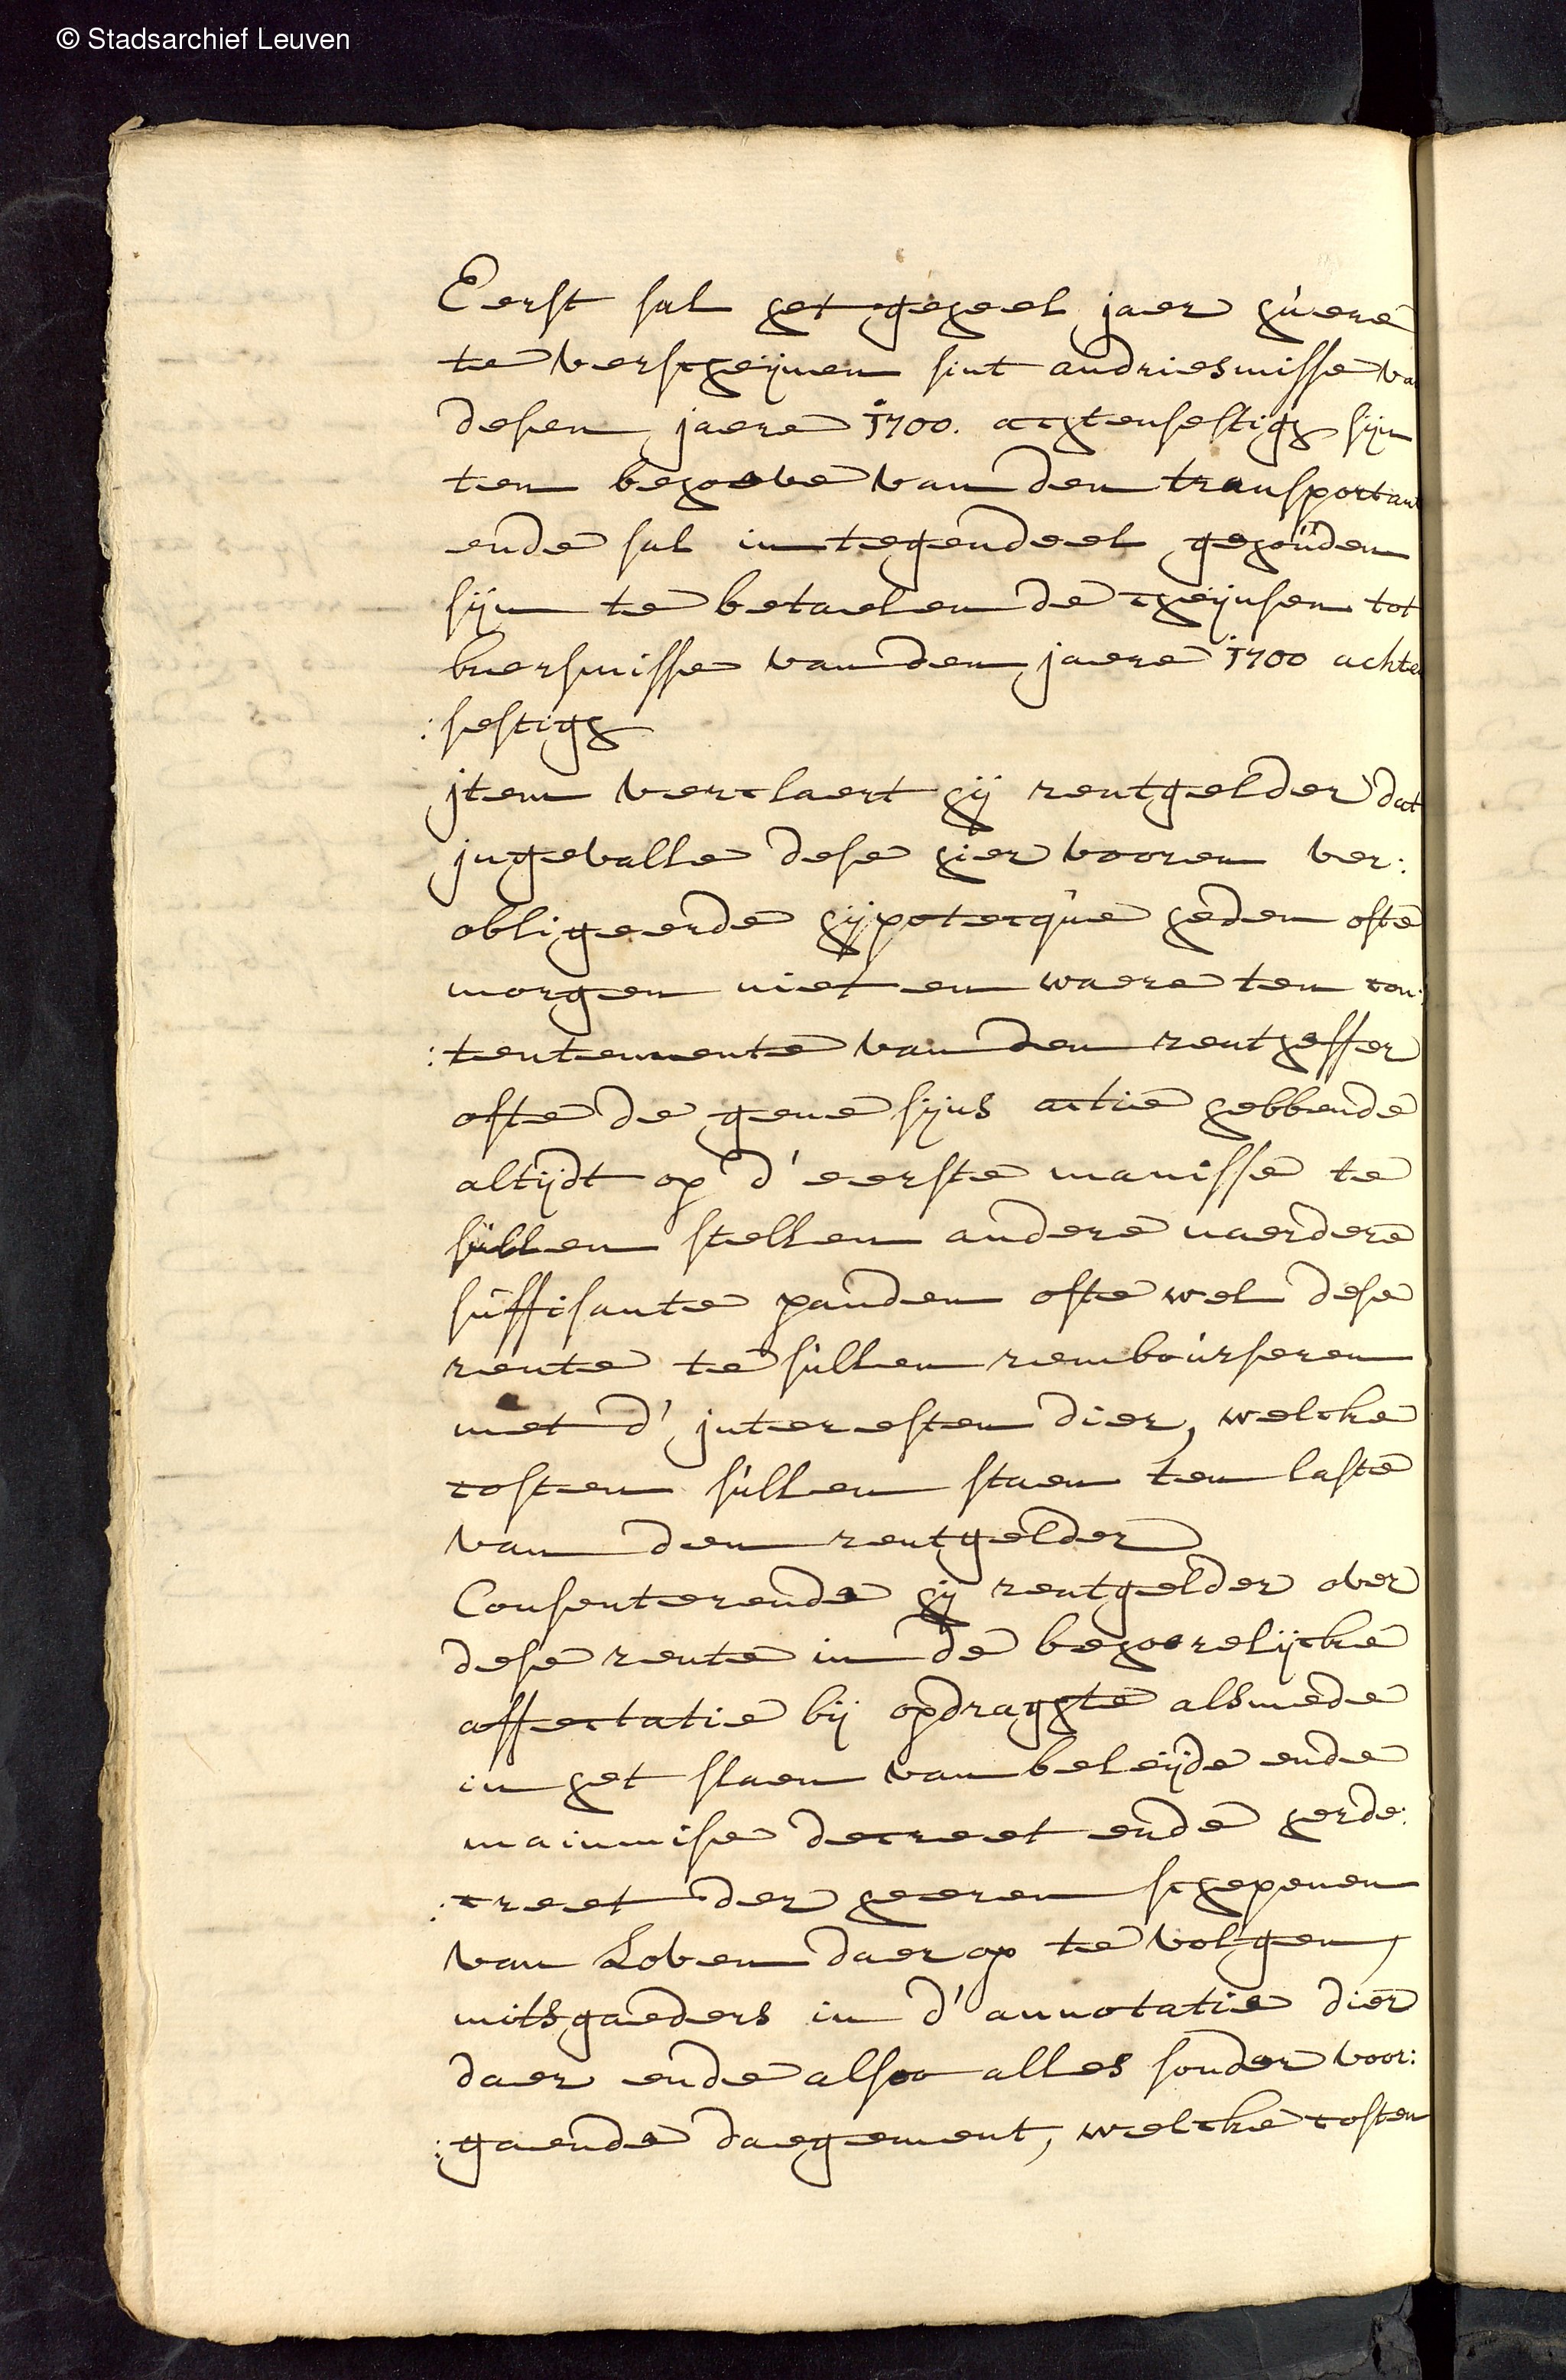 © Stadsarchief Leuven
Eerst sal het geheel jaer huere
te verscheijnen sint andriesmisse va
desen jaere 1700. achtensestigh sijn
ten behoeve van den transportant
ende sal in tegendeel gehoúden
sijn te betaelen de cheijnsen tot
kuersmisse van den jaere 1700 achten
:sestigh
jtem verclaert hij rentgelder dat
jngevalle dese hier vooren ver:
obligeerde hijpotecque heden ofte
morgen niet en waere ten con:
:tentemente van den rentheffer
ofte de gene sijns actie hebbende
altijdt op d'eerste manisse te
súllen stellen andere naerdere
súffisante panden ofte wel dese
rente te súllen remboúrseren
met d'jnteresten dier, welcke
costen súllen staen ten laste
van den rentgelder
Consenterende hij rentgelder over
dese rente in de behoorelijcke
affectatie bij opdraghte alsmede
in het slaen van beleijde ende
mainmise decreet ende herde:
:creet der heeren schepenen
van Loven daer op te volgen,
mitsgaeders in d'annotatie dier
daer ende alsoo alles sonder voor:
:gaende daegement, welcke costen